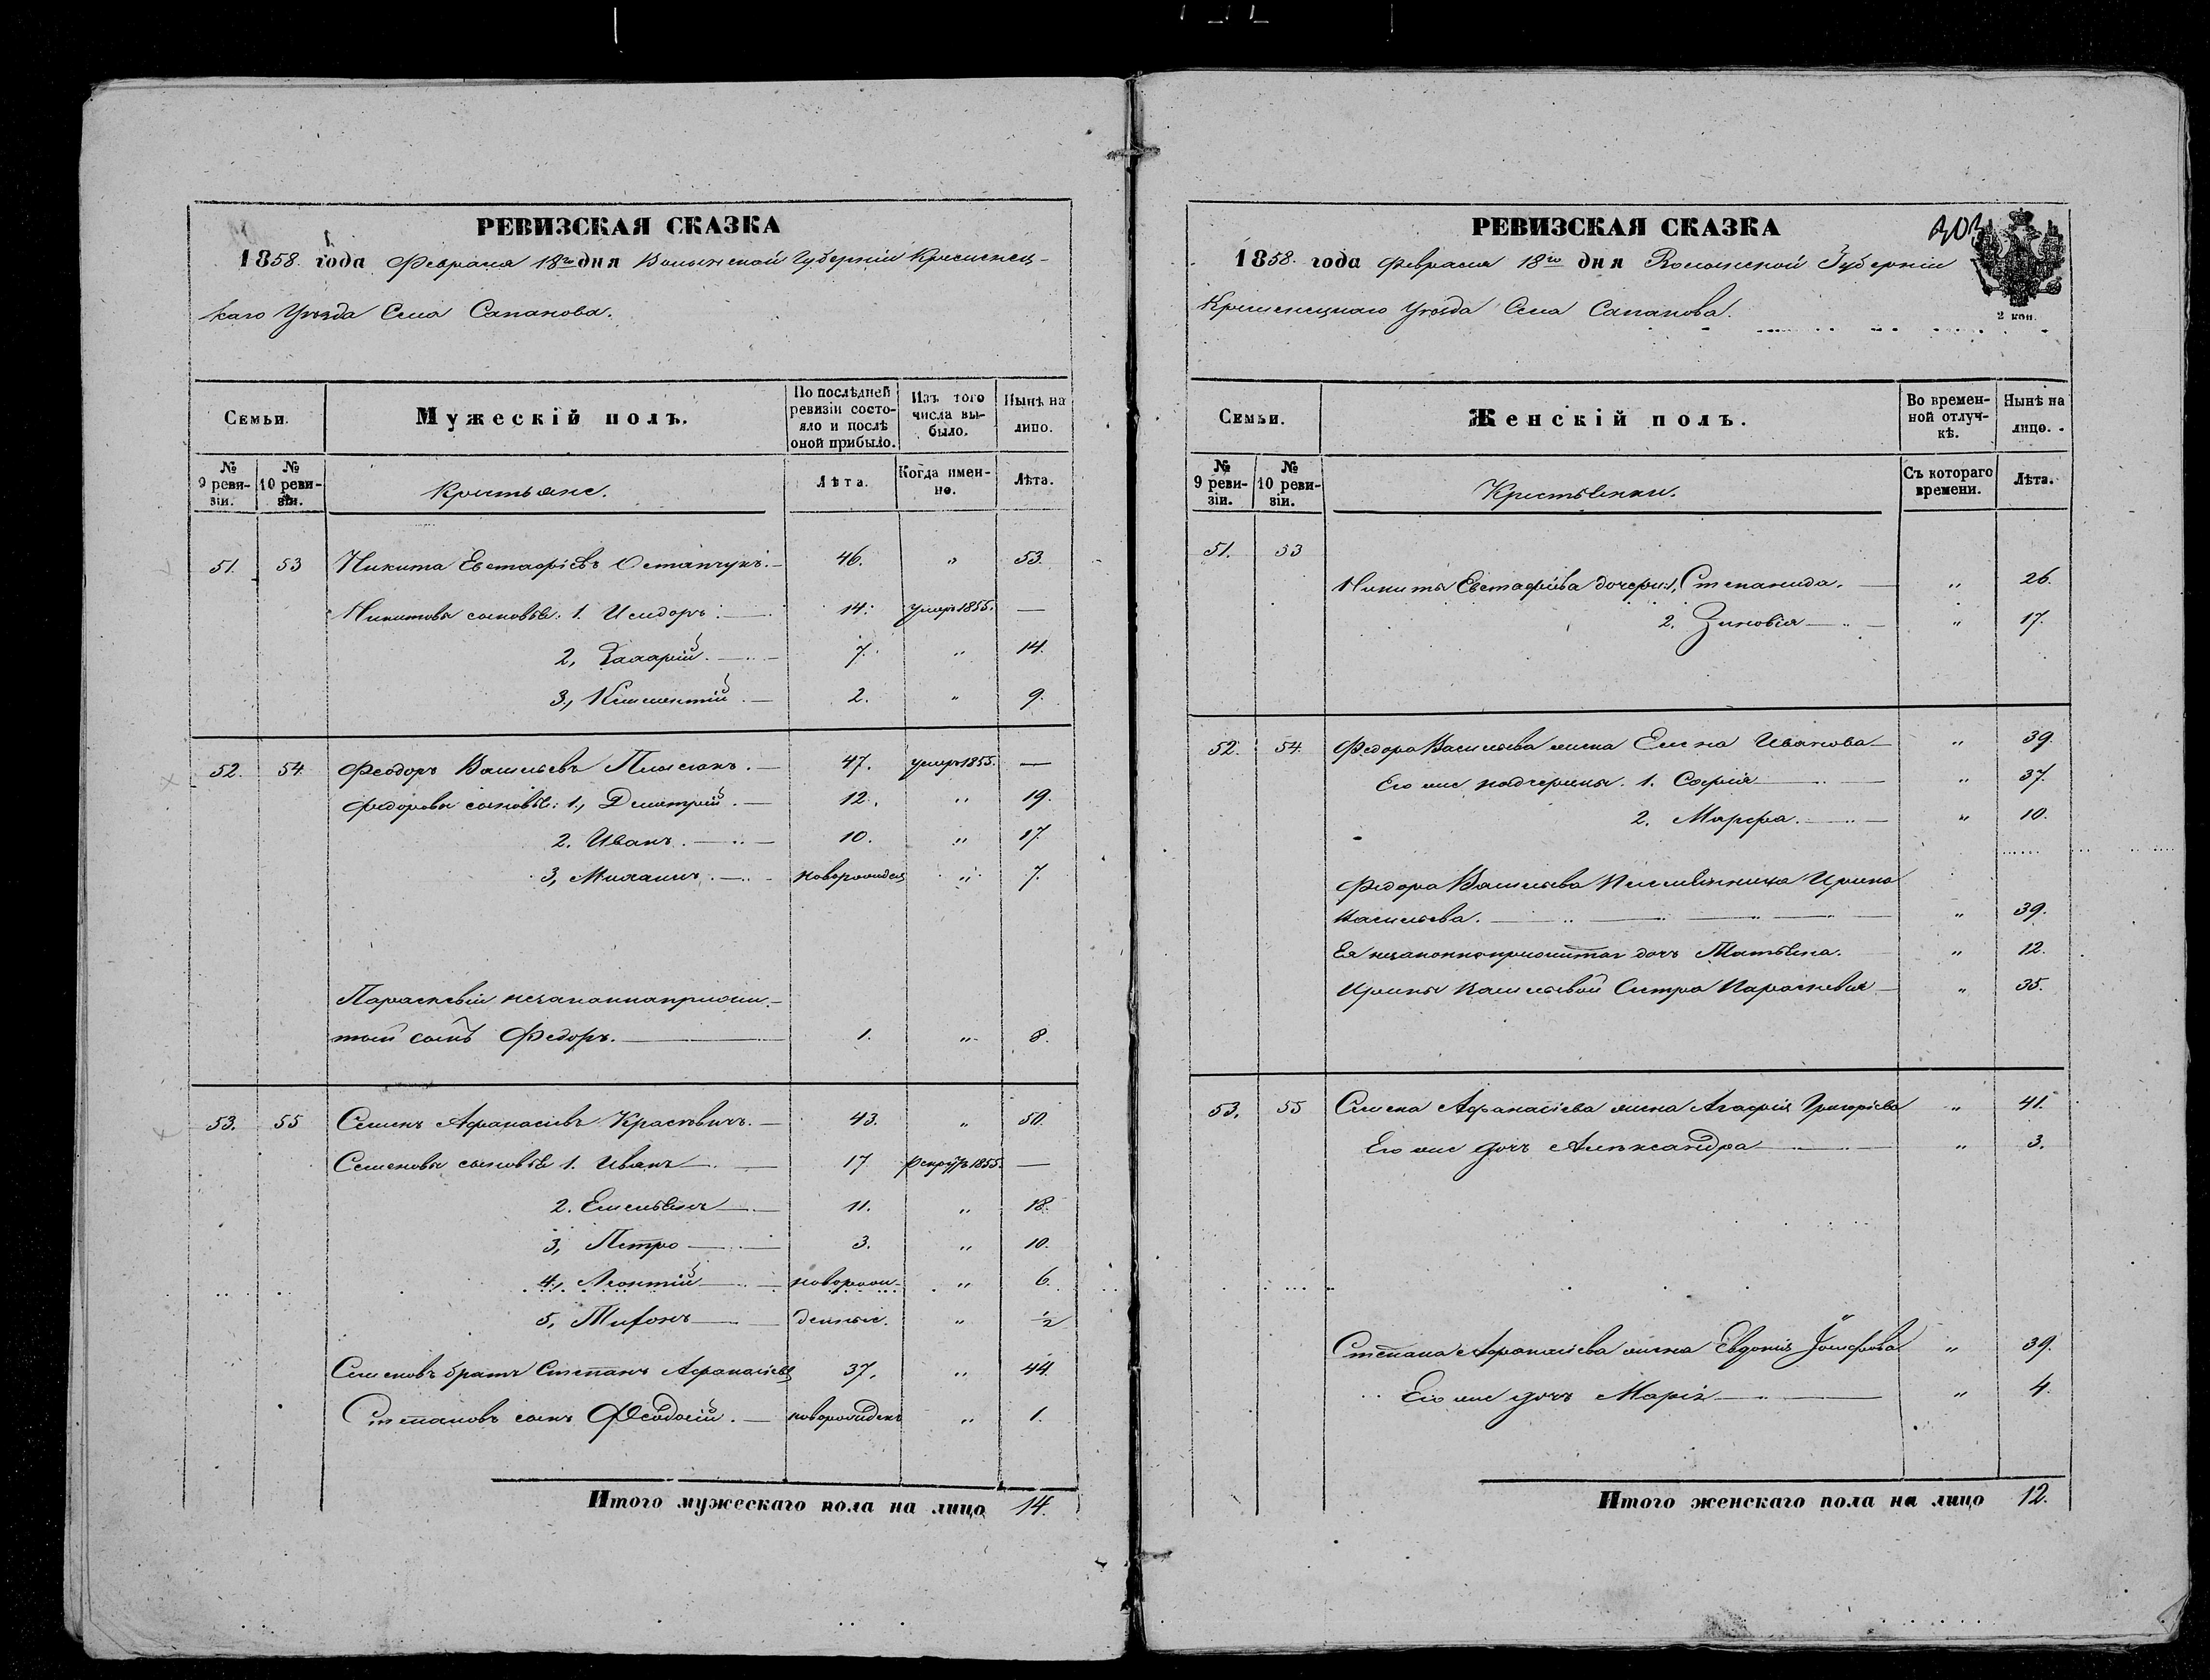 РЕВИЗСКАЯ СКАЗКА
1858. года Февраля 18го дня Волынской Губерніи Кременец-
каго Уѣзда Села Сапанова.
Семьи.
Мужескій полъ.
По послѣдней ревизіи состо-яло и послѣ оной прибыло.
Изъ того числа вы-было.
Нынѣ на лицо.
№ 9 реви-зіи.
№ 10 реви-зіи.
Крестьяне.
Лѣта.
Когда имен-но.
Лѣта.
51. 53 Никита Евстафіевъ Остапчукъ. 46. „ 53.
Никитовы сыновья: 1. Исидоръ 14. умеръ 1855. —
2, Захарій. 7. „ 14.
3, Климентій 2. „ 9.
52. 54. Феодоръ Васильевъ 47. умеръ 1855. —
Федоровы сыновья: 1, Димитрій. 12. „ 19.
2. Иванъ. 10. „ 17.
3, Михаилъ. новорожден „ 7.
Параскевіи незаконноприжи-
тый сынъ Федоръ. 1. „ 8.
53. 55 Семенъ Афанасіевъ Красовичъ. 43. „ 50.
Семеновы сыновья 1. Иванъ 17 Рекрутъ 1855. —
2. Емельянъ 11. „ 18.
3, Петро 3. „ 10.
4, Леонтій новорож- „ 6.
5, Тихонъ денные. „ 1/2
Семеновъ братъ Степанъ Афанасіевъ 37. „ 44.
Степановъ сынъ Феодосій. новорожденъ „ 1.
Итого мужескаго пола на лицо 14.
РЕВИЗСКАЯ СКАЗКА
303
1858. года февраля 18го дня Волынской Губерніи
Кременецкаго Уѣзда Села Сапанова.
2 коп.
Семьи.
Женскій полъ.
Во времен-ной отлуч-кѣ.
Нынѣ на лицо.
№ 9 реви-зіи.
№ 10 реви-зіи.
Крестьянки.
Съ котораго времени.
Лѣта.
51. 53
Никиты Евстафіева дочери: 1, Степанида. „ 26.
2. Зиновія „ 17.
52. 54. Федора Васильева жена Елена Иванова „ 39.
Его же падчерицы. 1. Софія „ 37.
2. Марфа. „ 10.
Федора Васильева Племянница Ирина
Васильева. „ 39.
Ея незаконноприжитая дочь Татьяна. „ 12.
Ирины Васильевой Сестра Параскевія „ 35.
53. 55 Семена Афанасіева жена Агафія Григорьева „ 41.
Его же дочь Александра „ 3.
Степана Афанасіева жена Евдокія Іосифова „ 39.
Его же дочь Марія „ 4.
Итого женскаго пола на лицо 12.